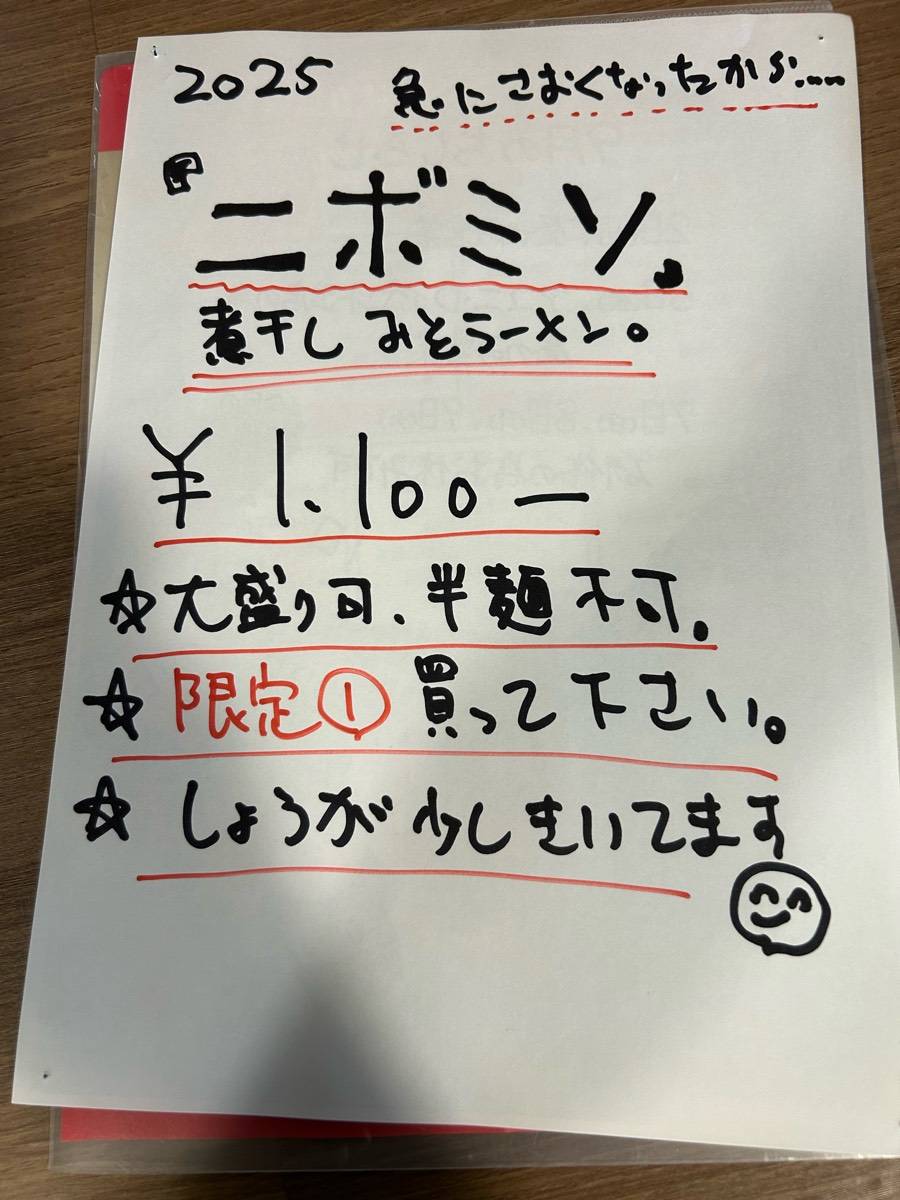 2025
急にさむくなったから……
『ニボミソ。』
煮干しみそラーメン。
¥1.100ー
☆大盛り可、半麺不可。
☆限定①買って下さい。
☆しょうが少しきいてます